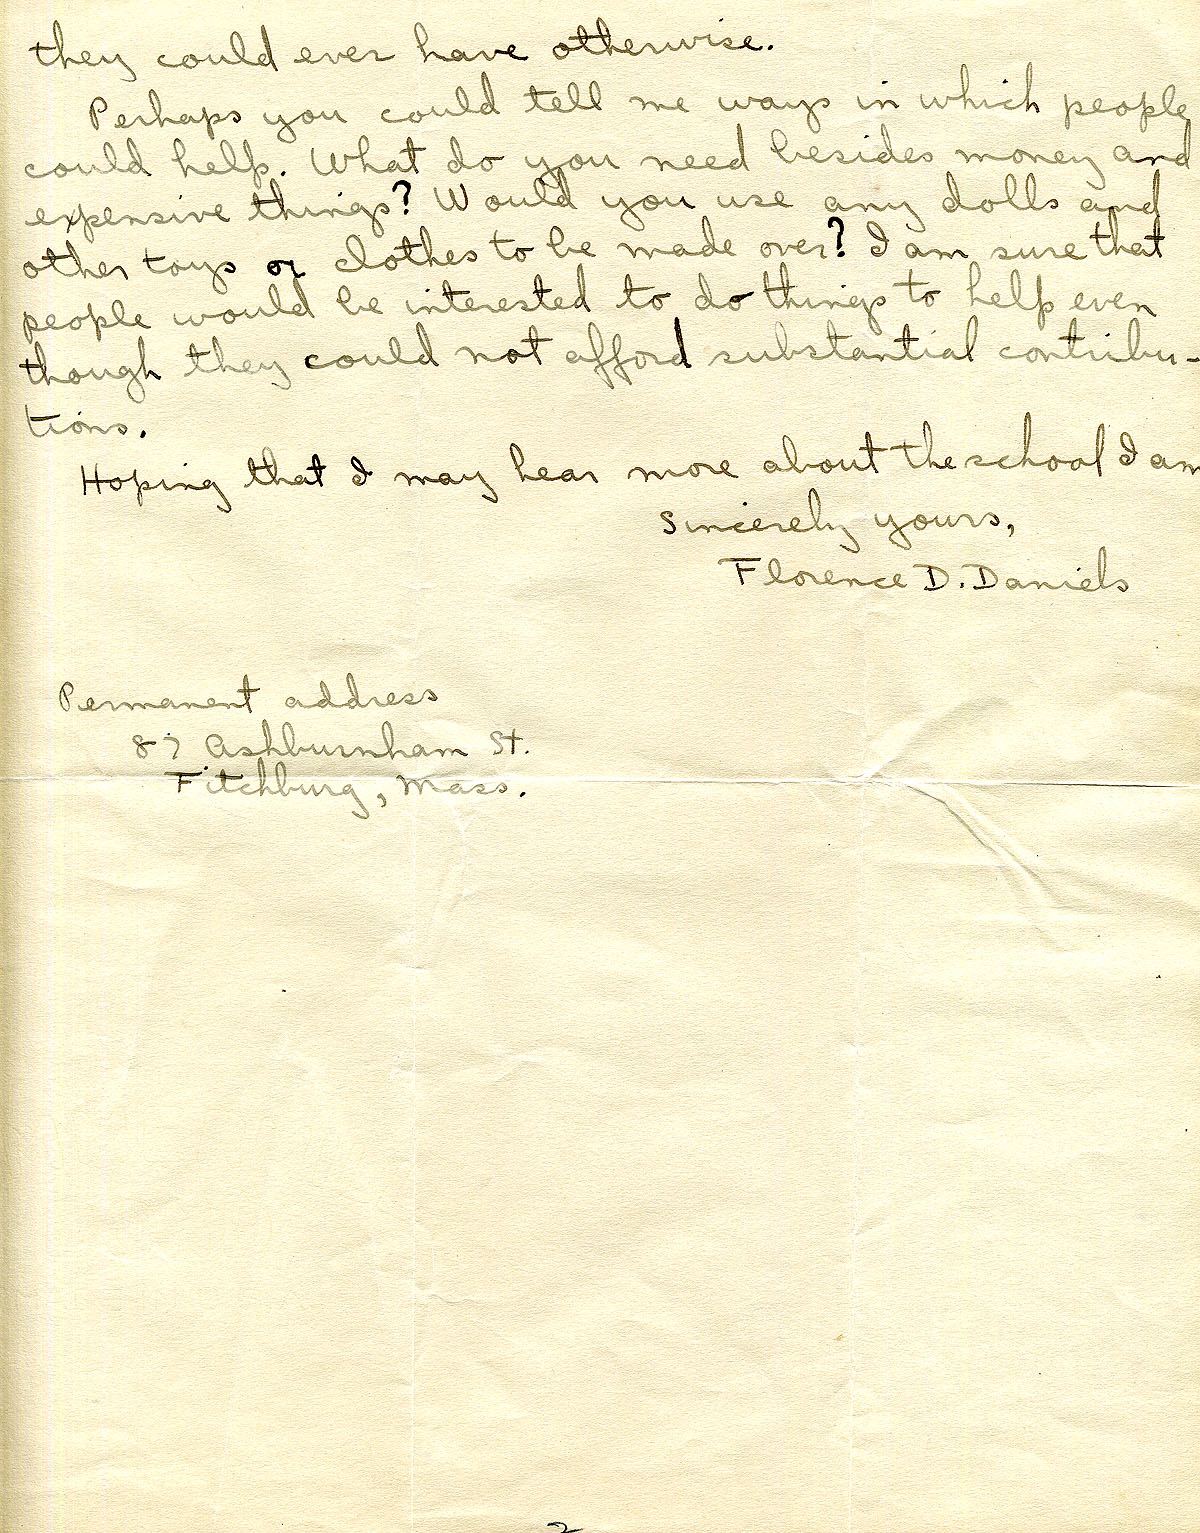 they could ever have otherwise.
Perhaps you could tell me ways in which people
could help. What do you need besides money and
expensive things? Would you use any dolls and
other toys or clothes to be made over? I am sure that
people would be interested to do things to help even
though they could not afford substantial contribu-
tions.
Hoping that I may hear more about the school I am
Sincerely yours,
Florence D. Daniels
Permanent address
87 Ashburnham St.
Fitchburg, Mass.